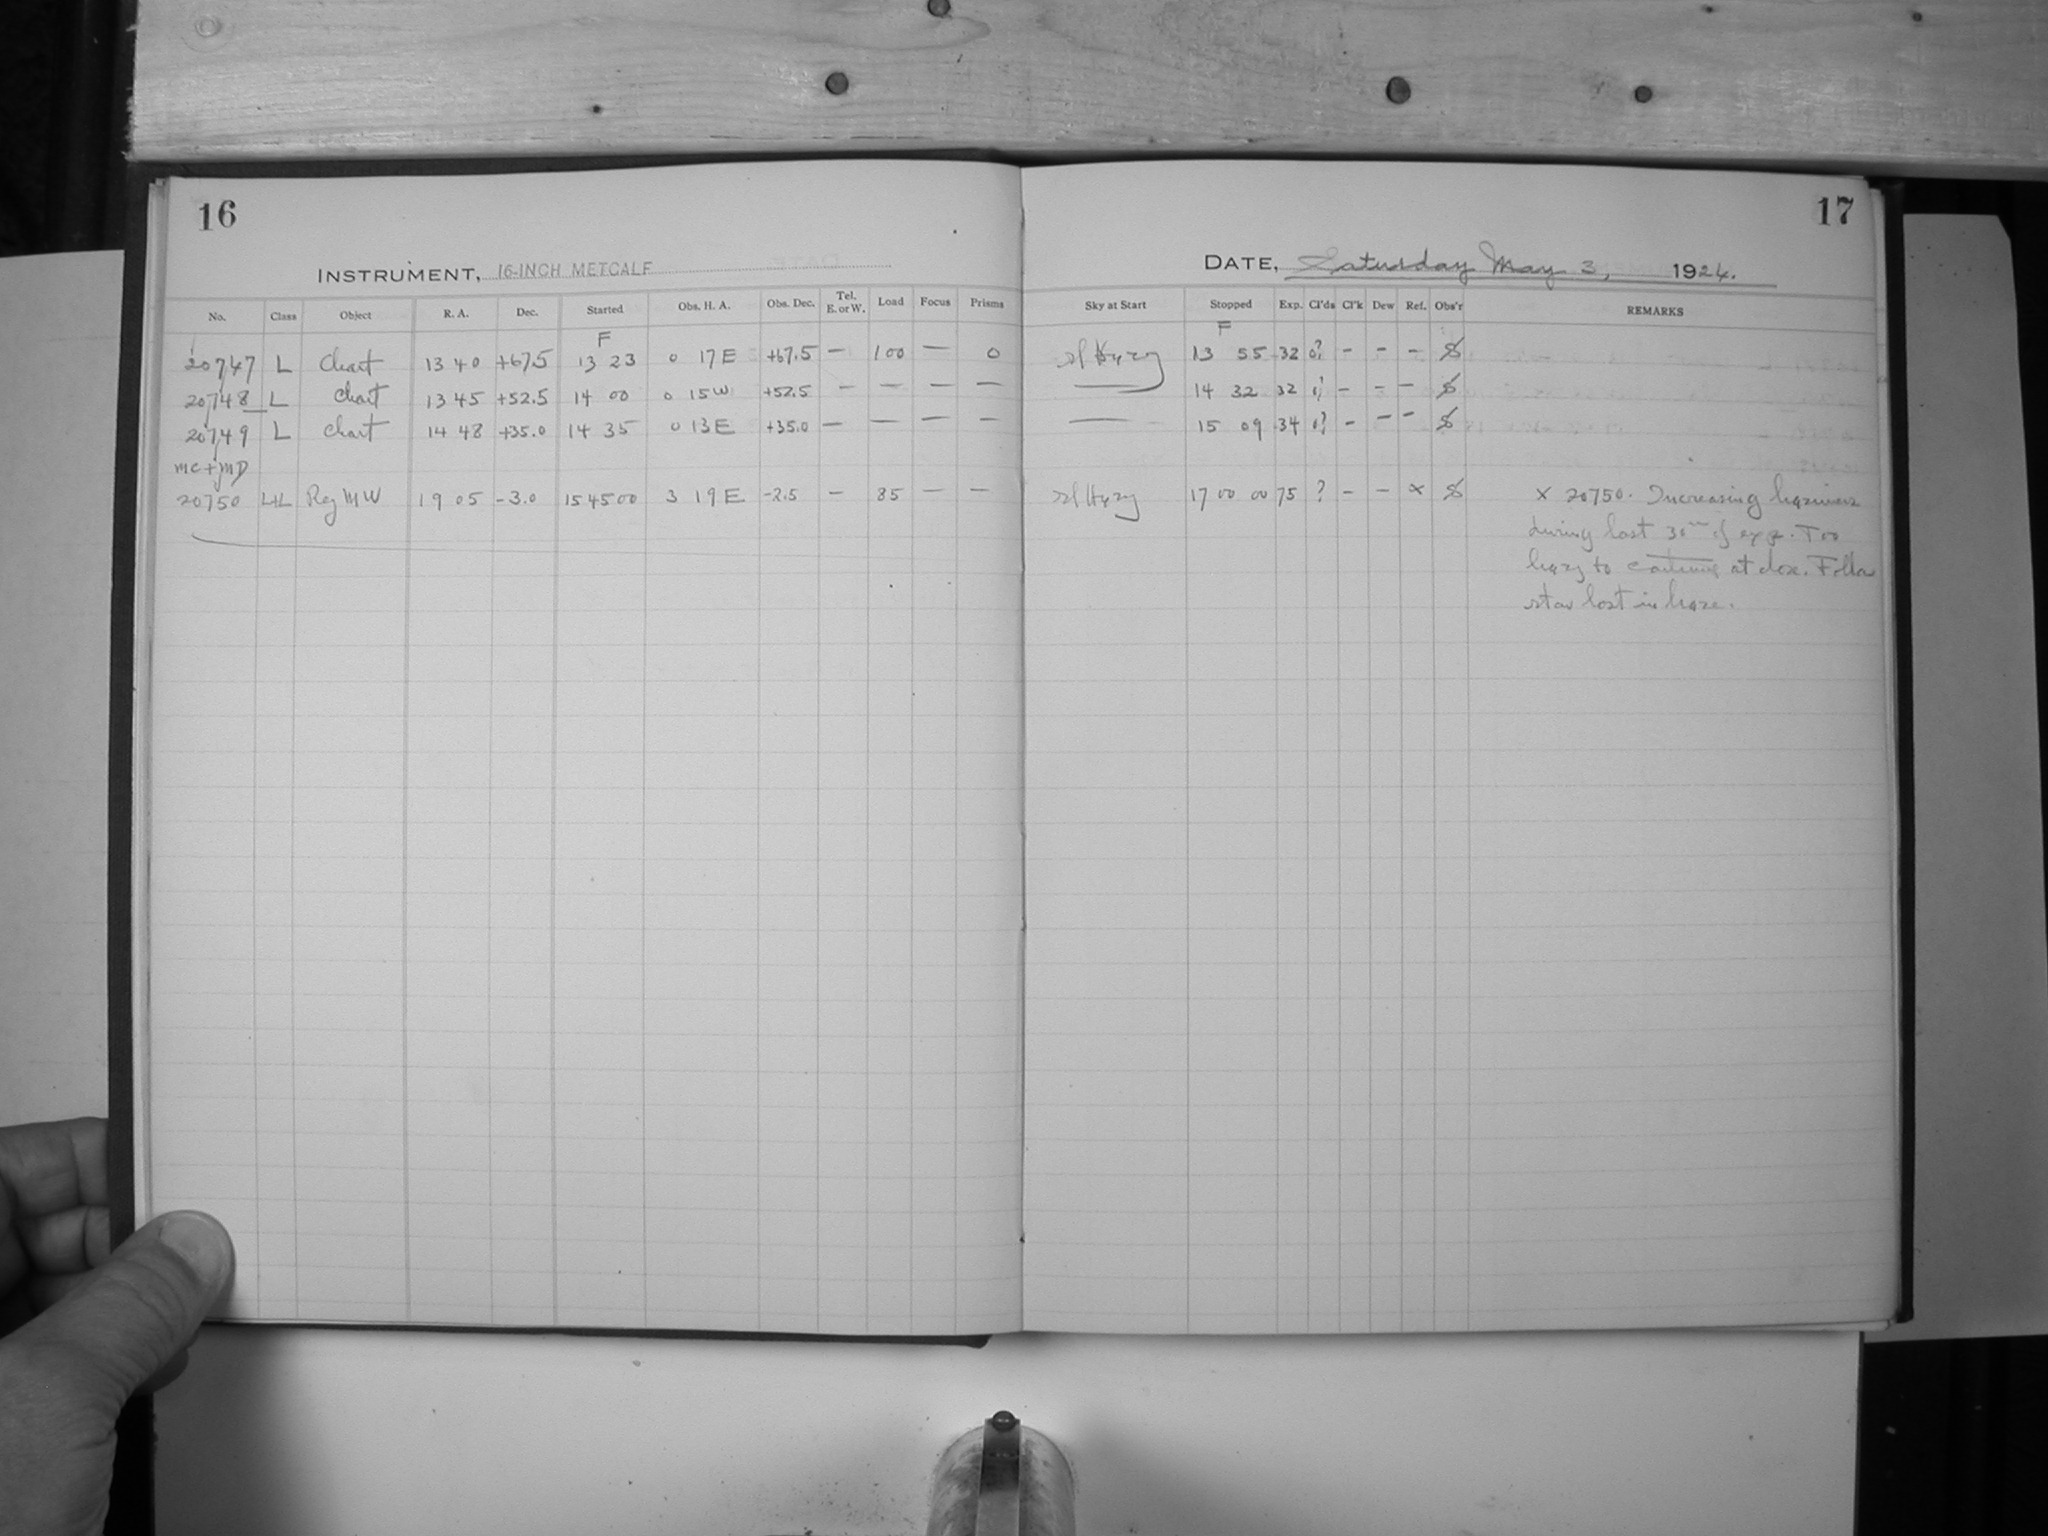 16
17
INSTRUMENT, 16-INCH METCALF
DATE, Saturday May 3, 1924.
No. Class Object R. A. Dec. Started Obs. H. A. Obs. Dec. Tel. E. or W. Load Focus Prisms Sky at Start Stopped Exp. Cl'ds Cl'k Dew Ref. Obs'r REMARKS
F F
20747 L Chart 13 40 +67.5 13 23 0 17 E +67.5 — 100 — 0 sl Hazy 13 55 32 0? - - -
20748 L Chart 13 45 +52.5 14 00 0 15 W +52.5 — — — — — 14 32 32 0? - - -
20749 L Chart 14 48 +35.0 14 35 0 13 E +35.0 — — — — — 15 09 34 0? - - -
MC+MD
20750 LL Reg MW 19 05 -3.0 15 45 00 3 19 E -2.5 — 85 — — sl Hazy 17 00 00 75 ? - - x x 20750. Increasing haziness
during last 30m of exp. Too
hazy to continue at close. Follow
star lost in haze.